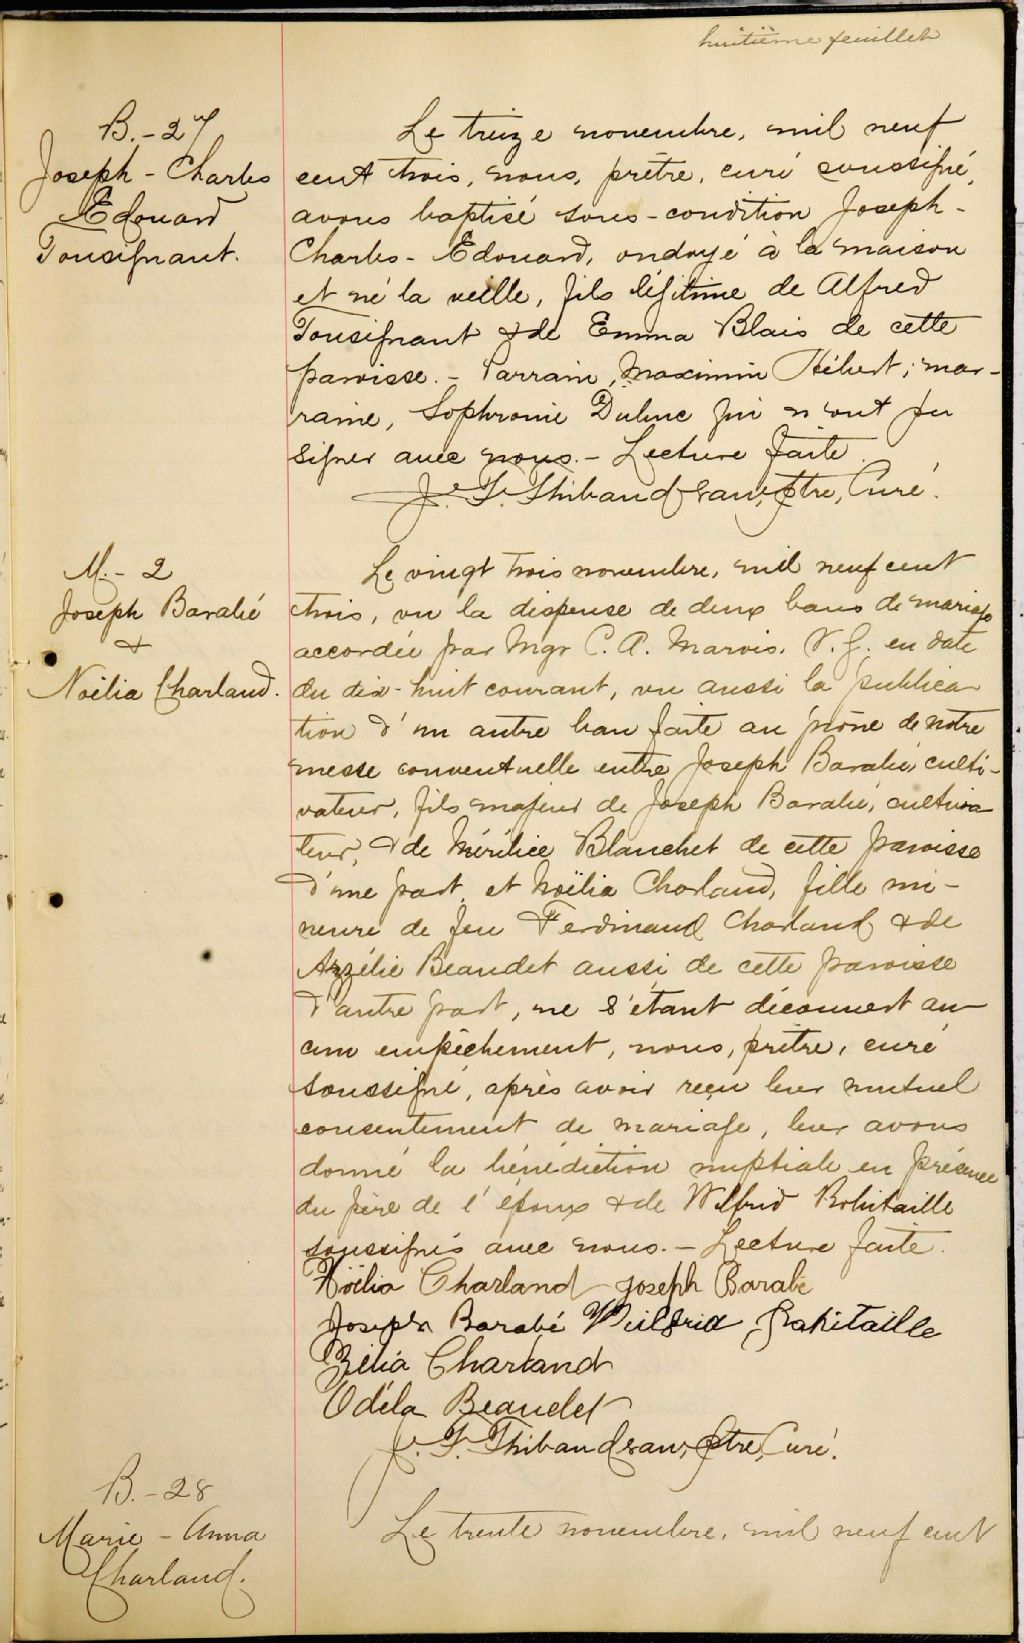 huitième feuillet
B. - 27
Joseph - Charles
Edouard
Tousignant.
Le treize novembre, mil neuf
cent trois, nous, prêtre, curé soussigné,
avons baptisé sous-condition Joseph-
Charles-Edouard, ondoyé à la maison
et né la veille, fils légitime de Alfred
Tousignant & de Emma Blais de cette
paroisse. - Parrain, Maximin Hébert; mar-
raine, Sophronie Dubuc qui n'ont pu
signer avec nous. - Lecture faite.
J. F. Thibaudeau, Ptre, Curé.
M. - 2
Joseph Barabé
&
Noëlia Charland.
Le vingt trois novembre, mil neuf cent
trois, vu la dispense de deux bans de mariage
accordée par Mgr C. A. Marois, V. G. en date
du dix-huit courant, vu aussi la publica
tion d'un autre ban faite au prône de notre
messe conventuelle entre Joseph Barabé, culti-
vateur, fils majeur de Joseph Barabé, cultiva
teur, & de Mérilice Blanchet de cette paroisse
d'une part, et Noëlia Charland, fille mi-
neure de feu Ferdinand Charland & de
Azzélie Beaudet aussi de cette paroisse
d'autre part, ne s'étant découvert au
cun empêchement, nous, prêtre, curé
soussigné, après avoir reçu leur mutuel
consentement de mariage, leur avons
donné la bénédiction nuptiale en présence
du père de l'époux & de Wilfrid Robitaille
soussignés avec nous. - Lecture faite.
Noëlia Charland Joseph Barabé
Joseph Barabé Wilfrid Robitaille
Zélia Charland
Odéla Beaudet
J. F. Thibaudeau, Ptre, Curé.
B. - 28
Marie - Anna
Charland.
Le trente novembre, mil neuf cent